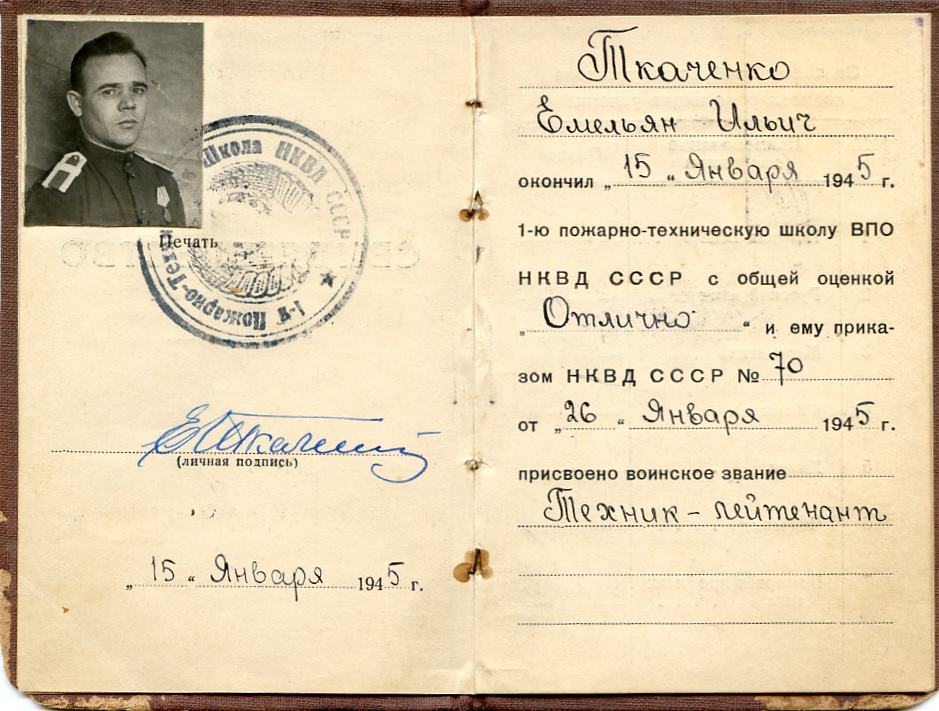 Школа НКВД СССР
1-я Пожарно-Тех
Печать
(личная подпись)
„15“ Января 1945 г.
Ткаченко
Емельян Ильич
окончил „15“ Января 1945 г.
1-ю пожарно-техническую школу ВПО
НКВД СССР с общей оценкой
„Отлично“ и ему прика-
зом НКВД СССР № 70
от „26“ Января 1945 г.
присвоено воинское звание
Техник-лейтенант